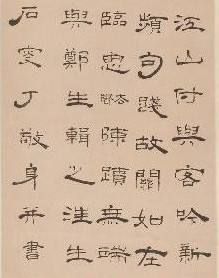 江山付與客吟新
頻句踐故關如在
臨忠陳蹟無端
與鄭生輯之淮生
石叟丁敬身并書